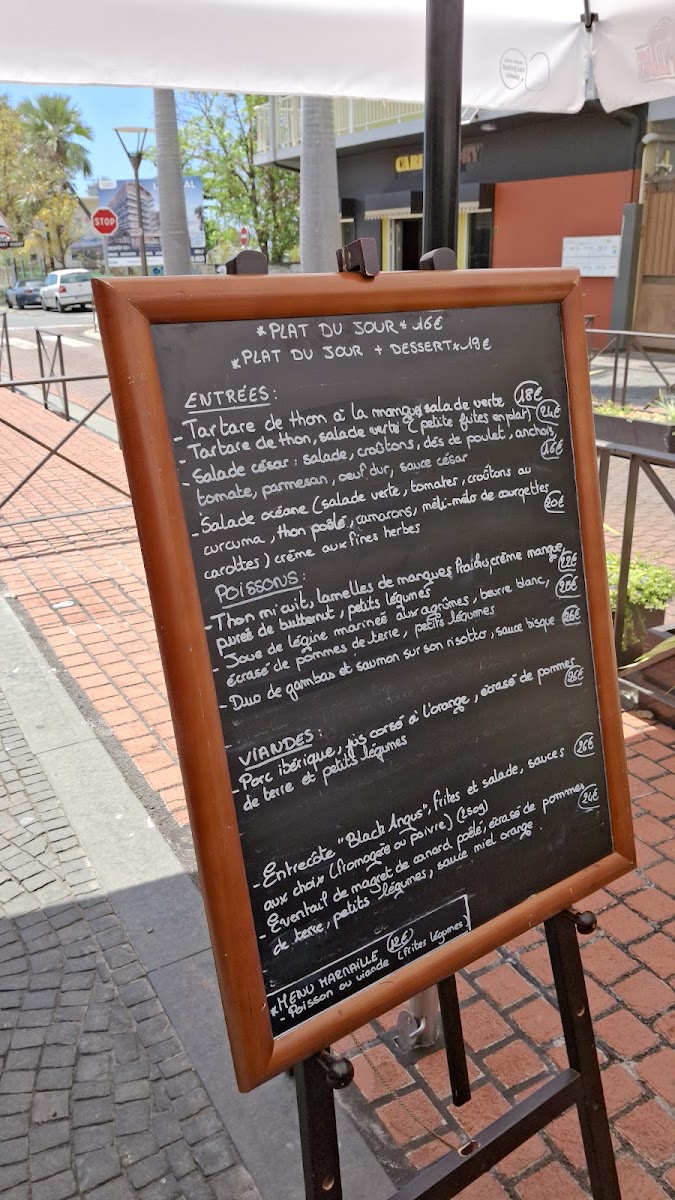 STOP
*PLAT DU JOUR* 16€
*PLAT DU JOUR + DESSERT* 19€
ENTRÉES:
- Tartare de thon à la mangue, salade verte 18€
- Tartare de thon, salade verte (petite frites en plat) 24€
- Salade césar : salade, croûtons, dés de poulet, anchois 16€
tomate, parmesan, oeuf dur, sauce césar
- Salade océane (salade verte, tomates, croûtons au
curcuma, thon poêlé, camarons, méli-mélo de courgettes 20€
carottes) crème aux fines herbes
POISSONS:
- Thon mi cuit, lamelles de mangues, crème mangue,
purée de butternut, petits légumes
- Joue de légine marinée aux agrumes, beurre blanc,
écrasé de pommes de terre, petits légumes
- Duo de gambas et saumon sur son risotto, sauce bisque 26€
VIANDES:
- Porc ibérique, jus corsé à l'orange, écrasé de pommes 26€
de terre et petits légumes
- Entrecôte "Black Angus", frites et salade, sauces 26€
aux choix (fromagère ou poivre) (250g)
- Eventail de magret de canard poêlé, écrasé de pommes 24€
de terre, petits légumes, sauce miel orange.
*MENU MARMAILLE 12€
- Poisson ou viande (frites légumes)